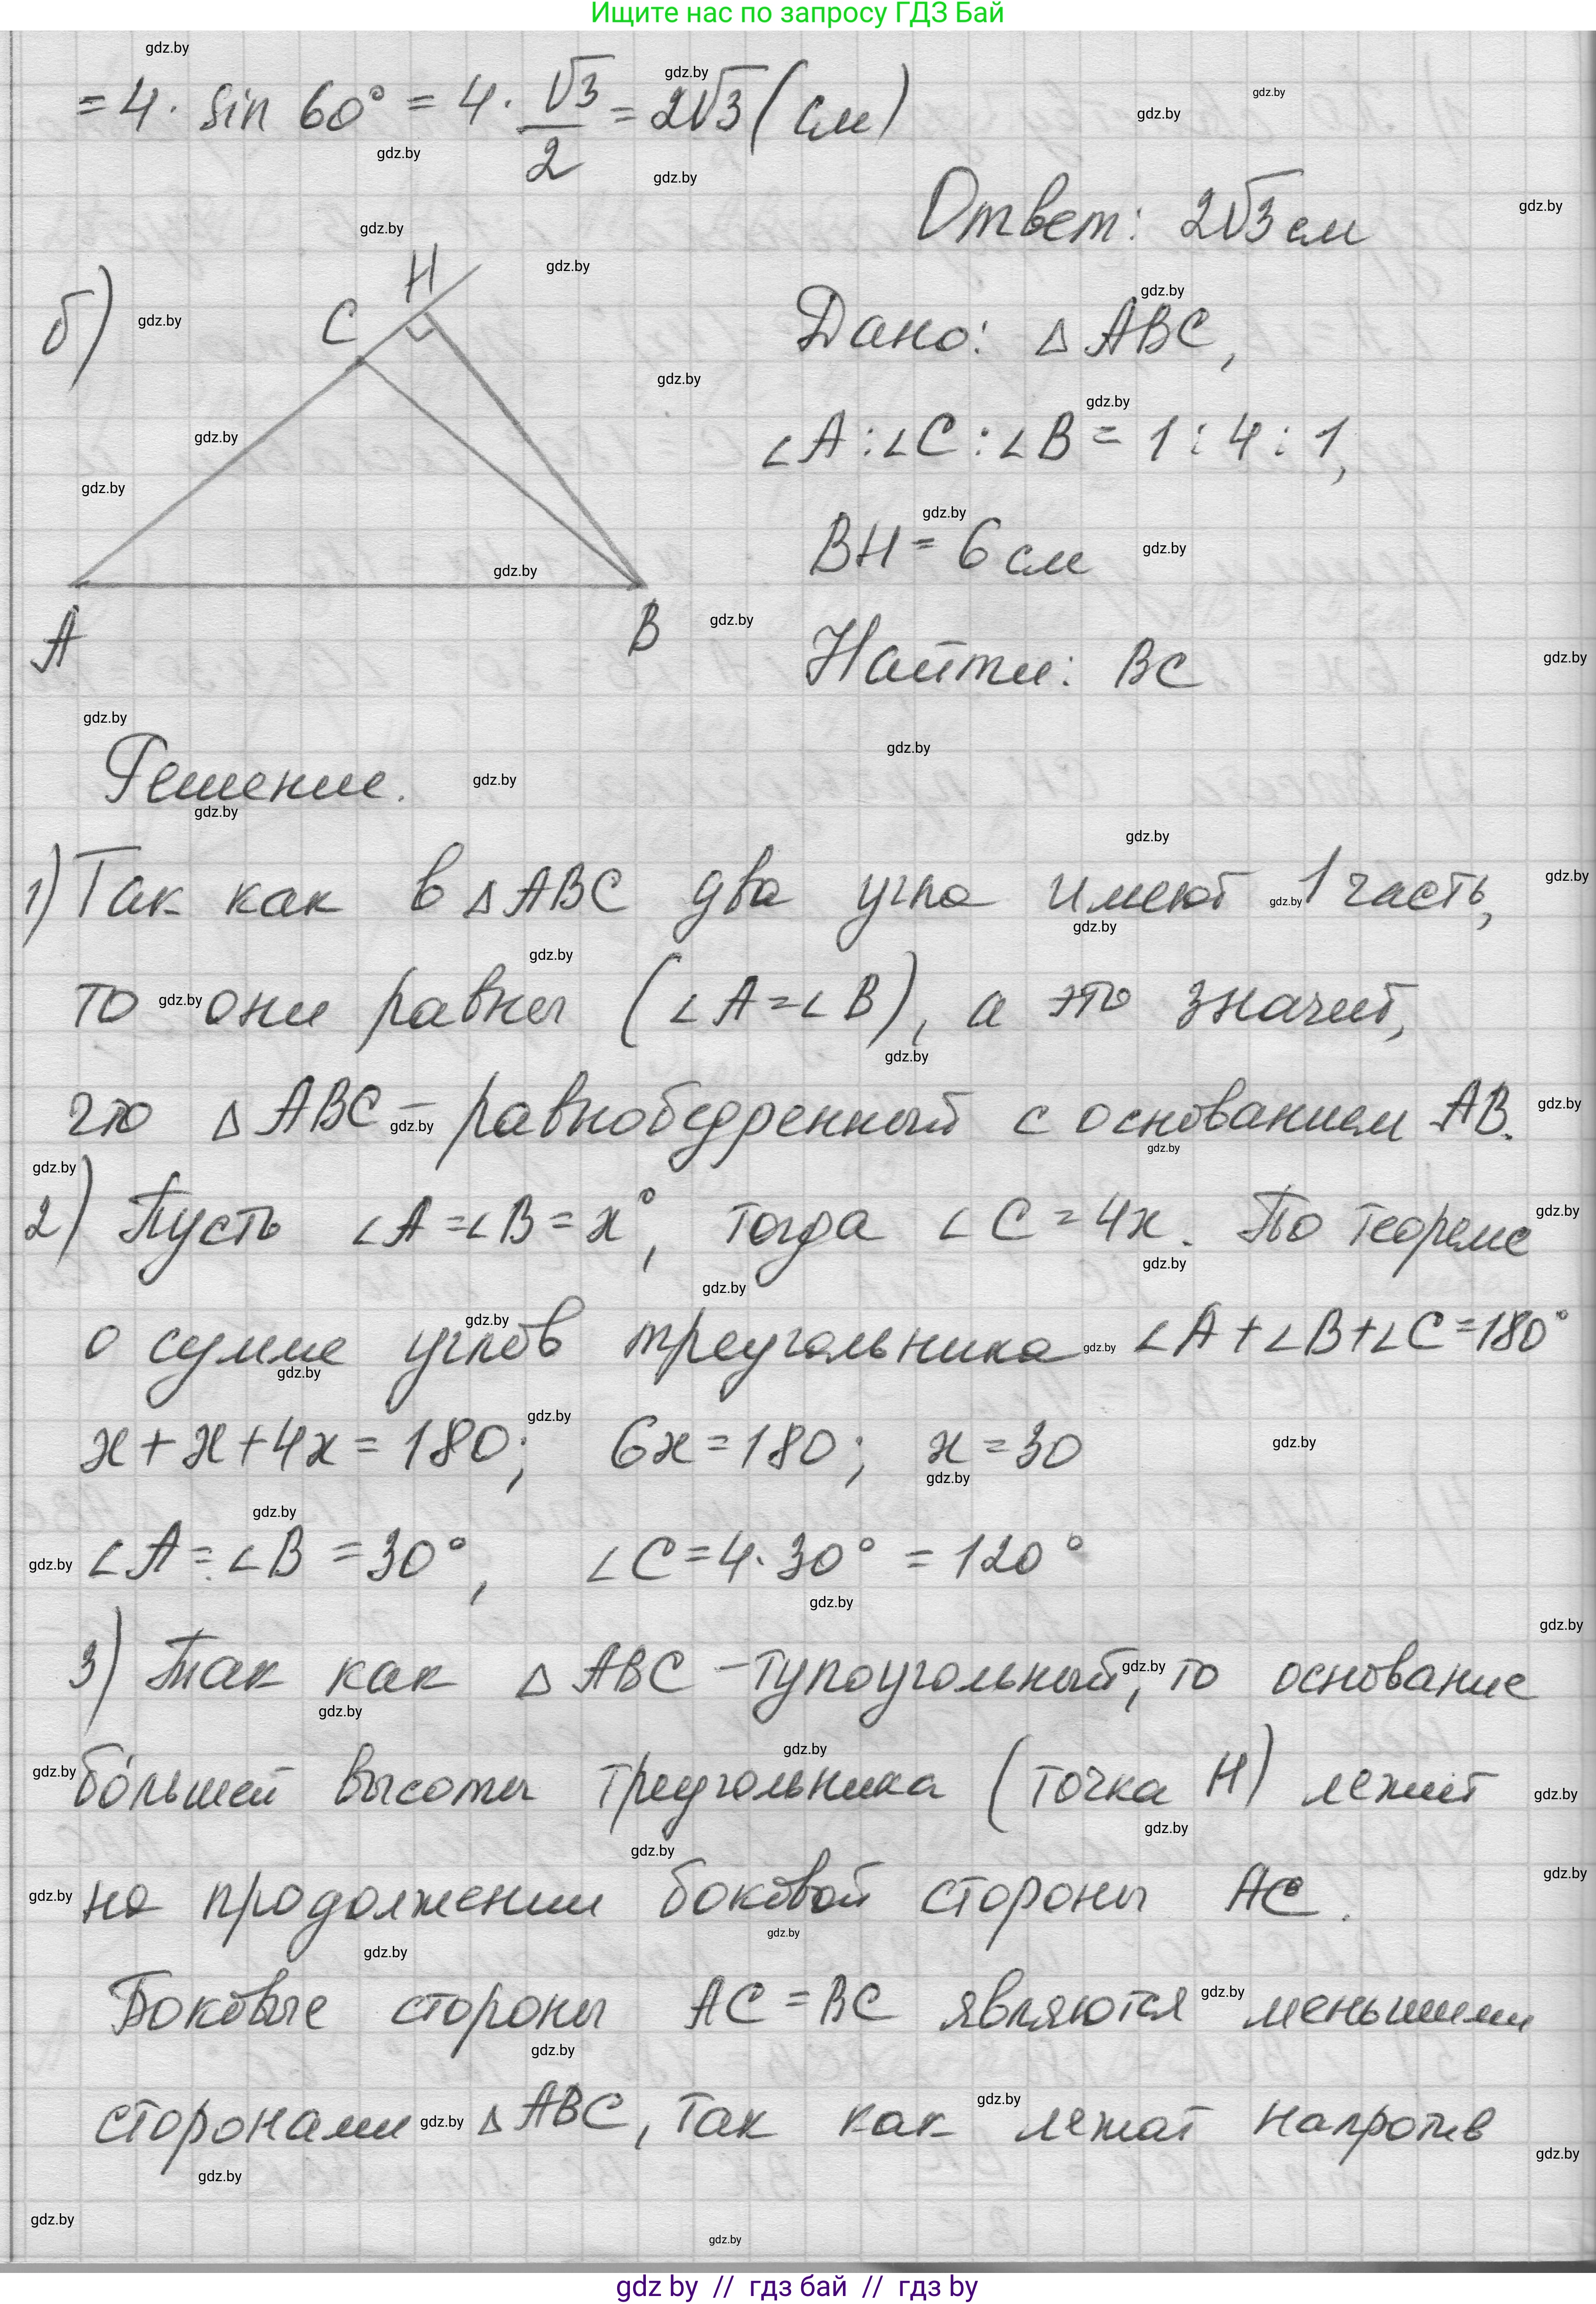 Ищите нас по запросу ГДЗ Бай
= 4 · sin 60° = 4 · √3/2 = 2√3 (см)
Ответ: 2√3 см
б)
C H
A B
Дано: △ ABC,
∠A : ∠C : ∠B = 1 : 4 : 1,
BH = 6 см
Найти: BC
Решение.
1) Так как в △ ABC два угла имеют 1 часть,
то они равны (∠A = ∠B), а это значит,
что △ ABC – равнобедренный с основанием AB.
2) Пусть ∠A = ∠B = x°, тогда ∠C = 4x. По теореме
о сумме углов треугольника ∠A + ∠B + ∠C = 180°
x + x + 4x = 180; 6x = 180; x = 30
∠A = ∠B = 30°, ∠C = 4 · 30° = 120°
3) Так как △ ABC – тупоугольный, то основание
бóльшей высоты треугольника (точка H) лежит
на продолжении боковой стороны AC.
Боковые стороны AC = BC являются меньшими
сторонами △ ABC, так как лежат напротив
gdz by // гдз бай // гдз by